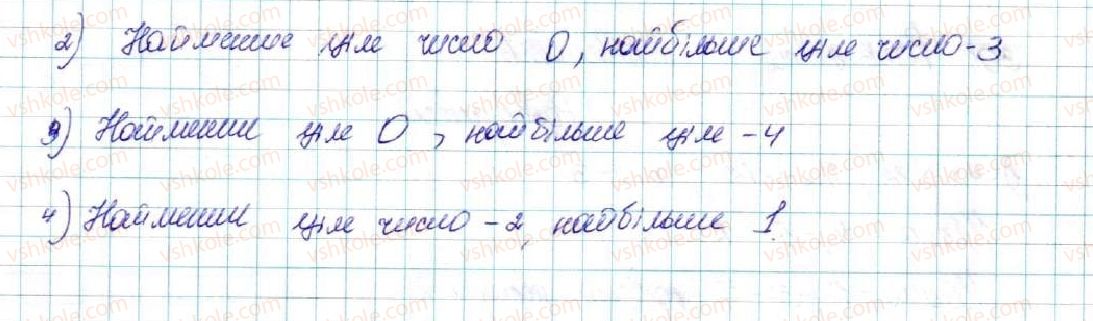 2) Найменше ціле число 0, найбільше ціле число -3.
3) Найменше ціле 0, найбільше ціле -4
4) Найменше ціле число -2, найбільше 1.